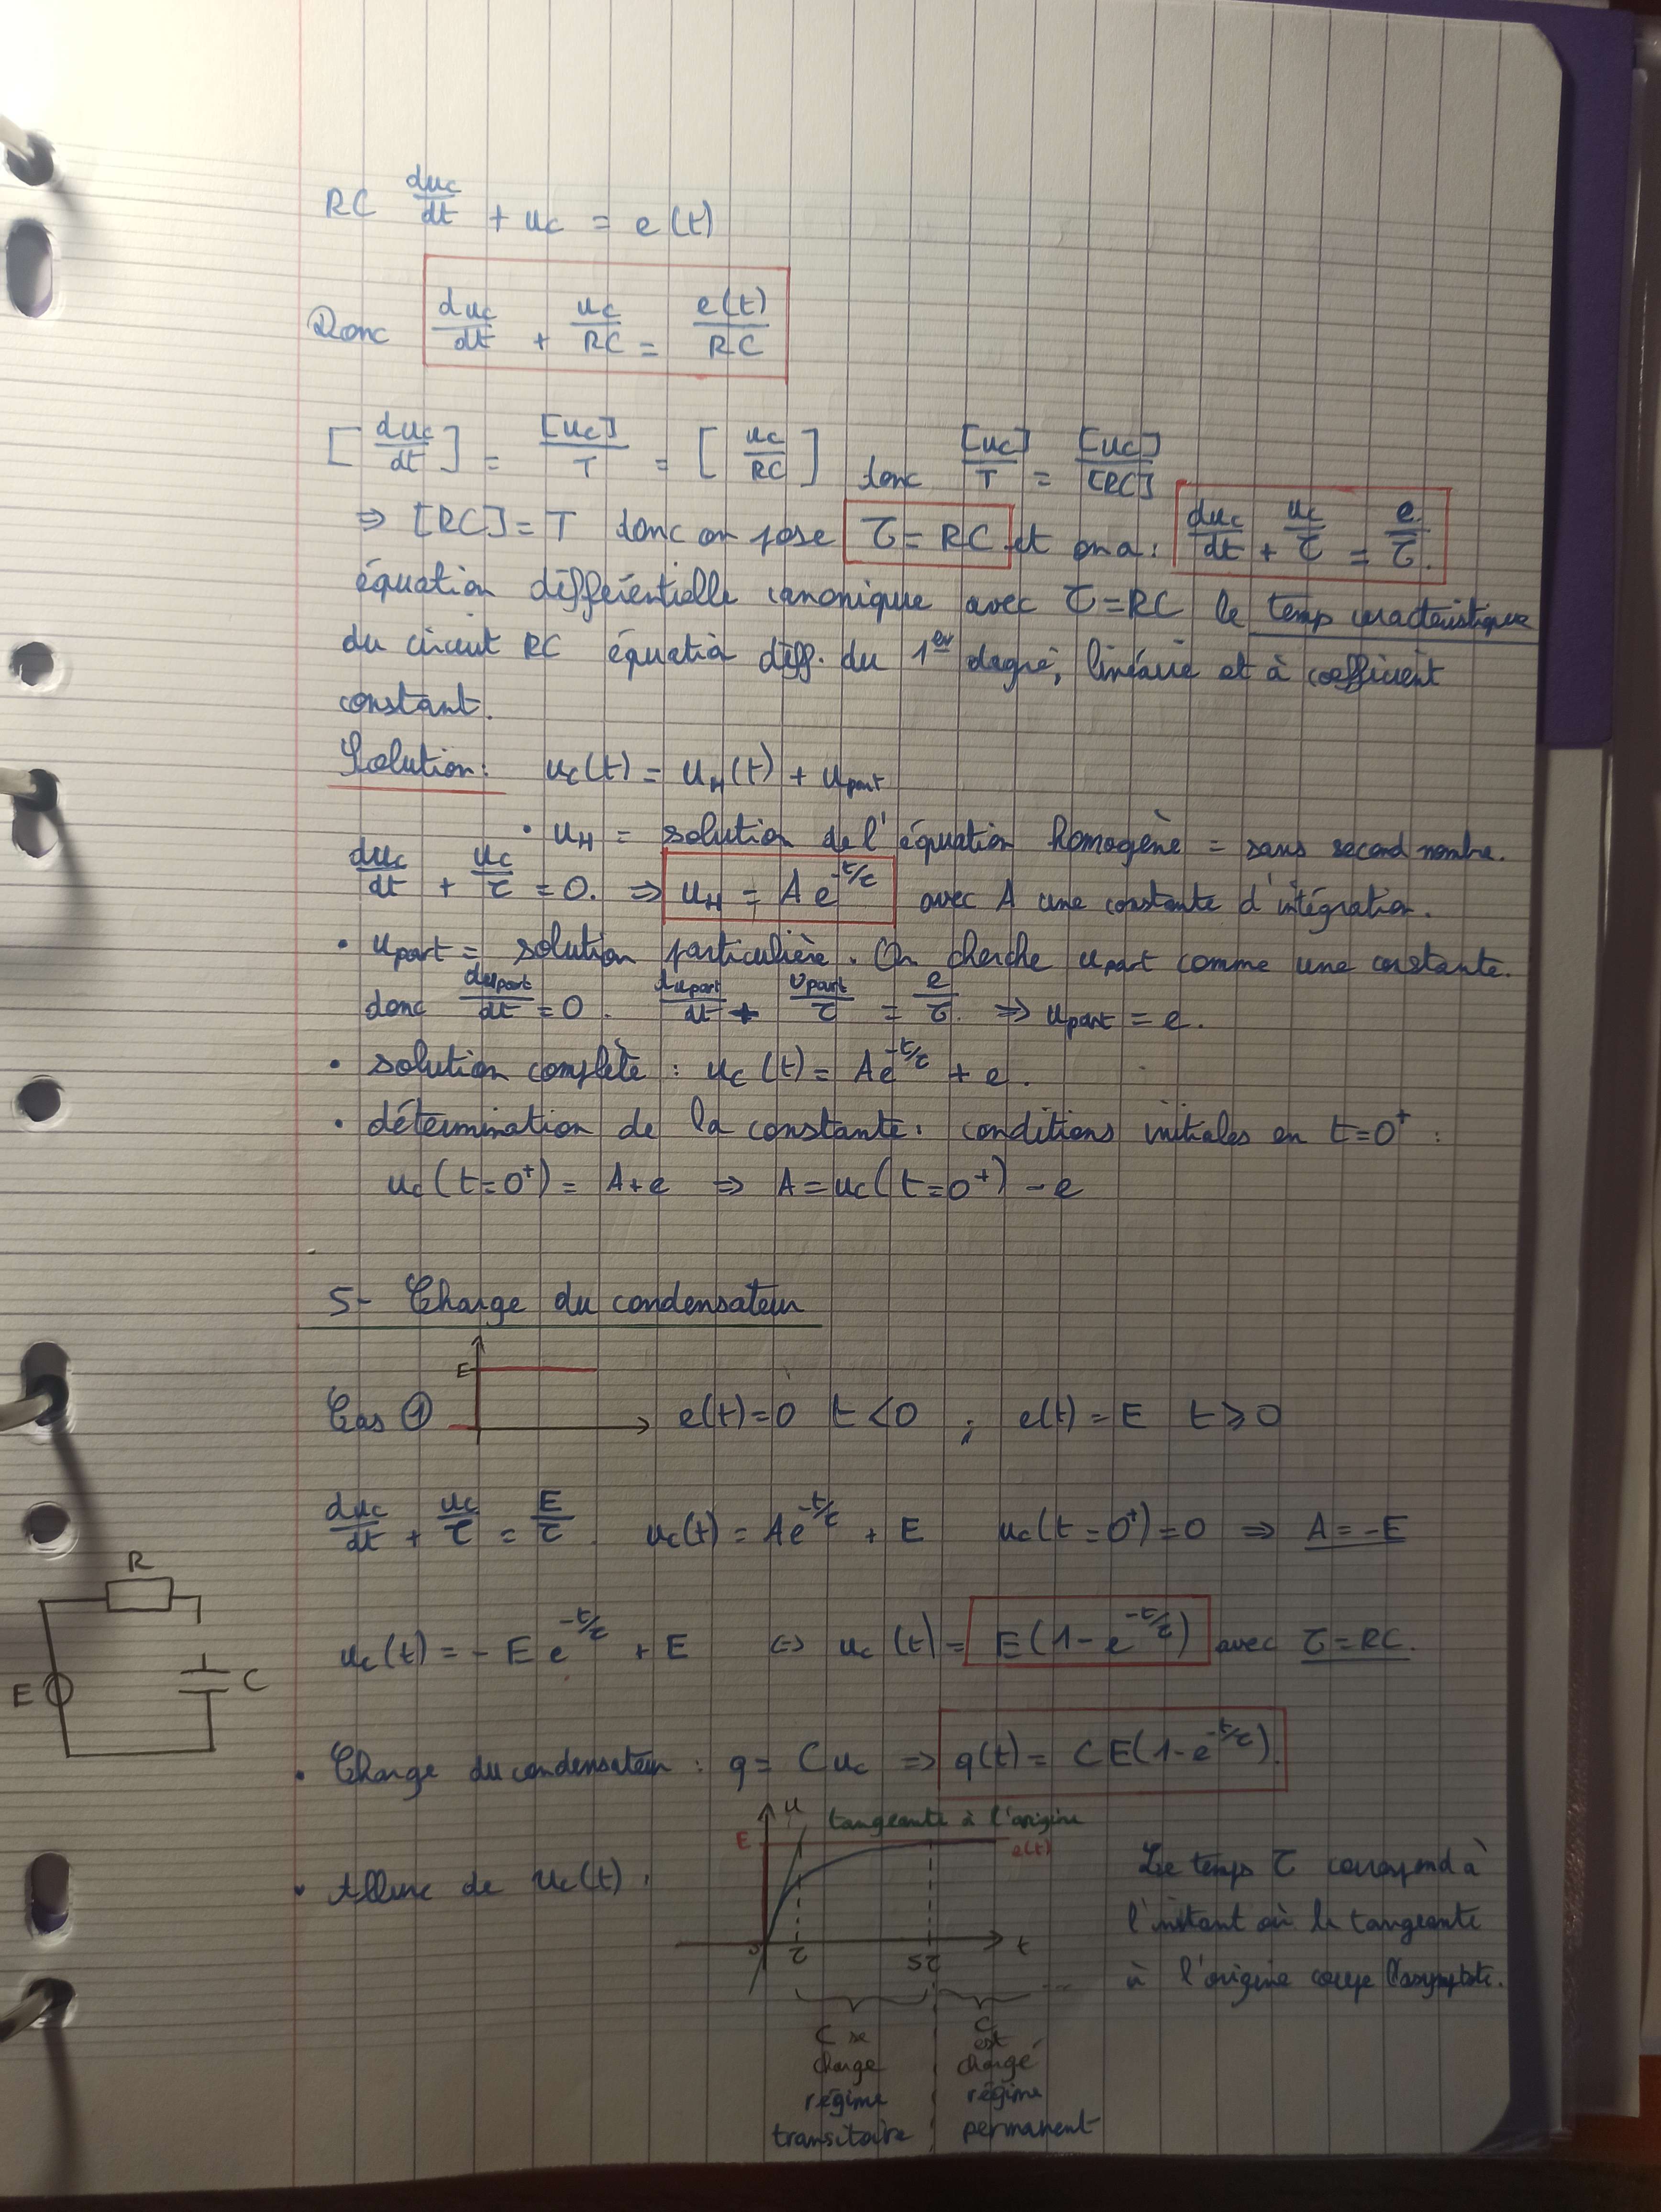 RC duc/dt + uc = e(t)
Donc duc/dt + uc/RC = e(t)/RC
[duc/dt] = [uc]/T = [uc/RC] donc [uc]/T = [uc]/[RC]
⇒ [RC] = T donc on pose τ = RC et on a : duc/dt + uc/τ = e/τ.
équation différentielle canonique avec τ = RC le temp caractéristique
du circuit RC équation diff. du 1er degré, linéaire et à coefficient
constant.
Solution : uc(t) = uH(t) + upart
• uH = solution de l'équation homogène = sans second nombre.
duc/dt + uc/τ = 0. ⇒ uH = A e^-t/τ avec A une constante d'intégration.
• upart = solution particulière. On cherche upart comme une constante.
donc dupart/dt = 0. dupart/dt + upart/τ = e/τ. ⇒ upart = e.
• solution complète : uc(t) = Ae^-t/τ + e.
• détermination de la constante. conditions initiales en t=0+ :
uc(t=0+) = A+e ⇒ A = uc(t=0+) - e
5- Charge du condensateur
E
Cas ① e(t)=0 t<0 ; e(t) = E t ⩾ 0
duc/dt + uc/τ = E/τ. uc(t) = Ae^-t/τ + E uc(t=0+)=0 ⇒ A=-E
R
E
C
uc(t) = - E e^-t/τ + E ⇔ uc(t) = E(1-e^-t/τ) avec τ=RC.
• Charge du condensateur : q = Cuc ⇒ q(t) = CE(1-e^-t/τ).
u tangeante à l'origine
E
e(t)
• Allure de uc(t) :
0 τ 5τ t
Le temps τ correspond à
l'instant où la tangeante
à l'origine coupe l'asymptote.
C se
charge
régime
transitoire
C
est
chargé
régime
permanent